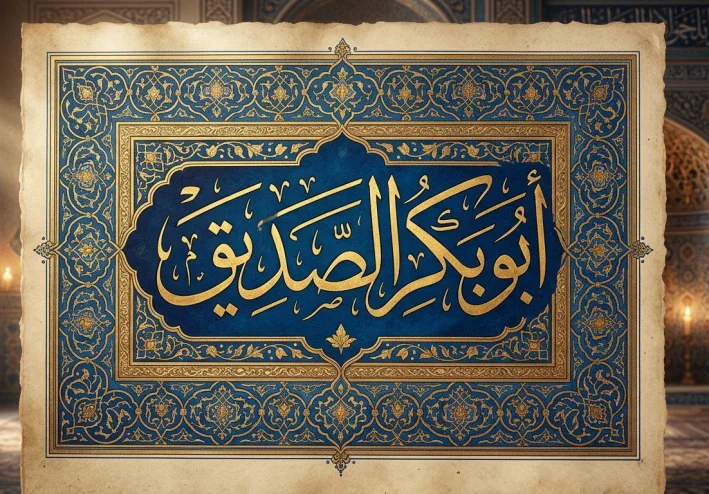 أبُو بَكْرُ الصَّدِيق